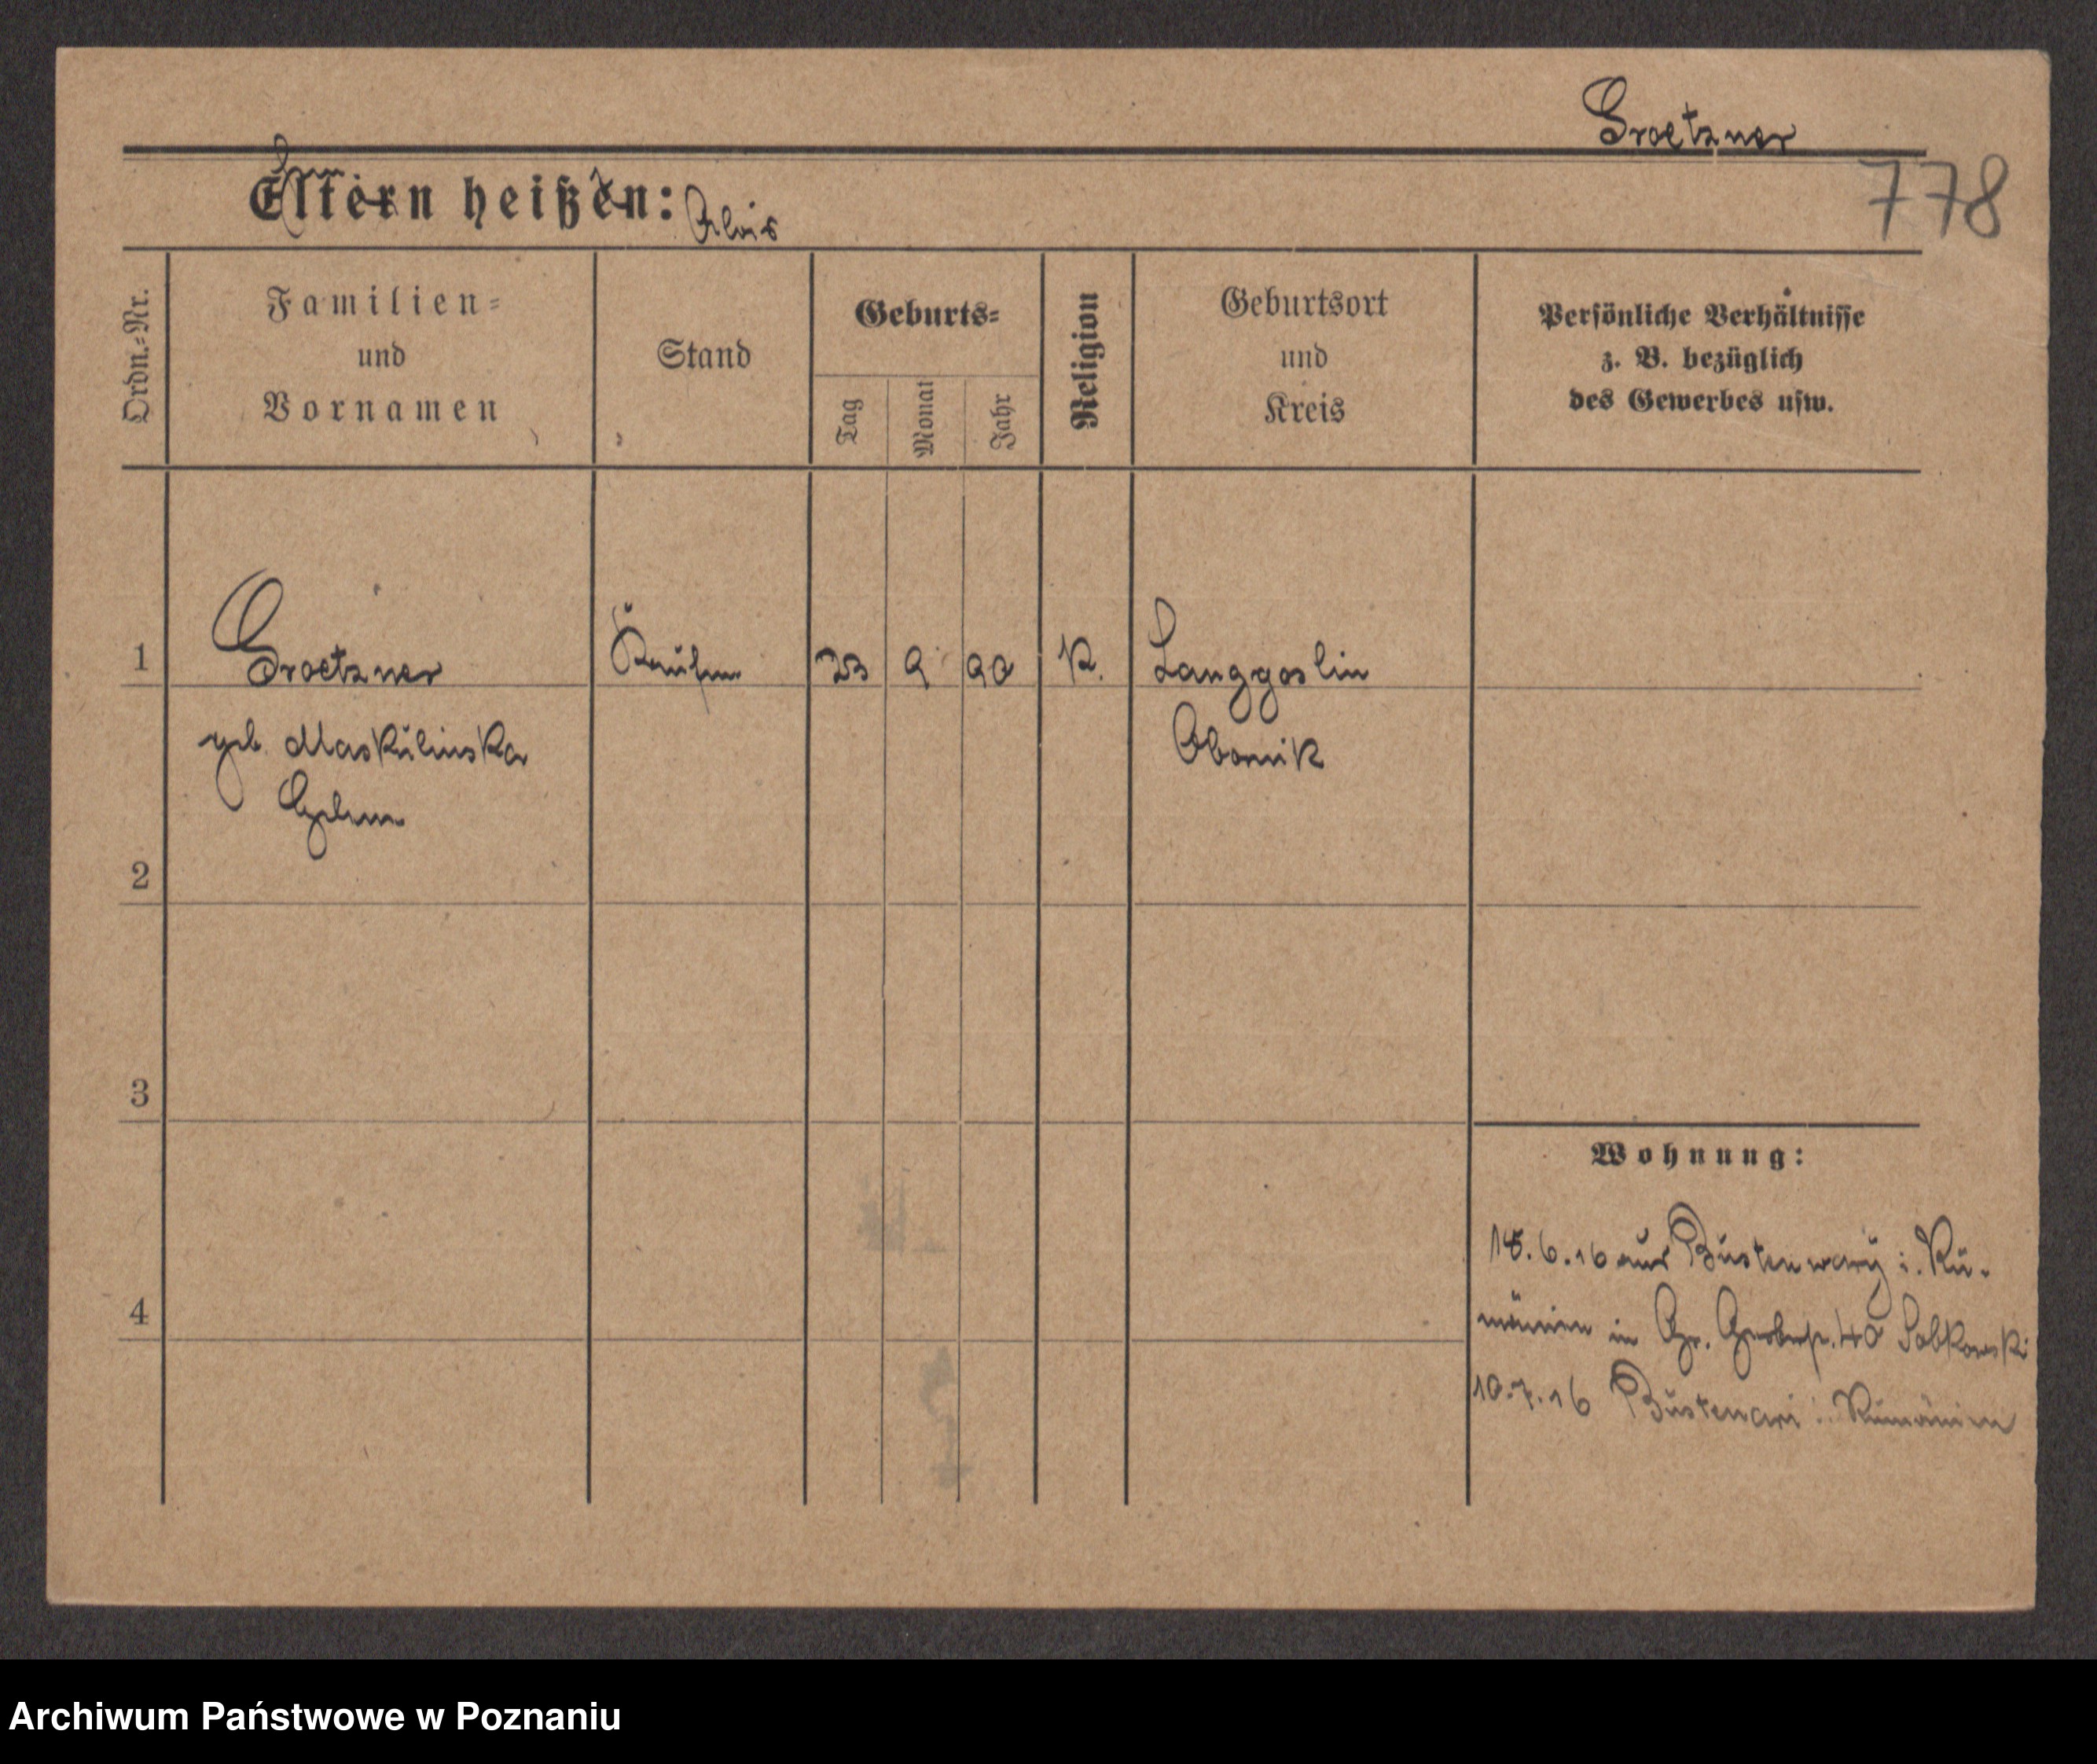 Groetzner
778
Eltern heißen:
Alois
Ordn.-Nr.
Familien-
und
Vornamen
Stand
Geburts-
Tag
Monat
Jahr
Religion
Geburtsort
und
Kreis
Persönliche Verhältnisse
z. B. bezüglich
des Gewerbes usw.
1
Groetzner
23
9
90
K.
Langgoslin
geb. Maskulinska
Obornik
2
3
Wohnung:
18.6.16 aus Bustenwary i. Ru-
4
mänien in Gr. Gerberstr. 40 Sobkowski
10.7.16 Bustenari i. Rumänien
Archiwum Państwowe w Poznaniu